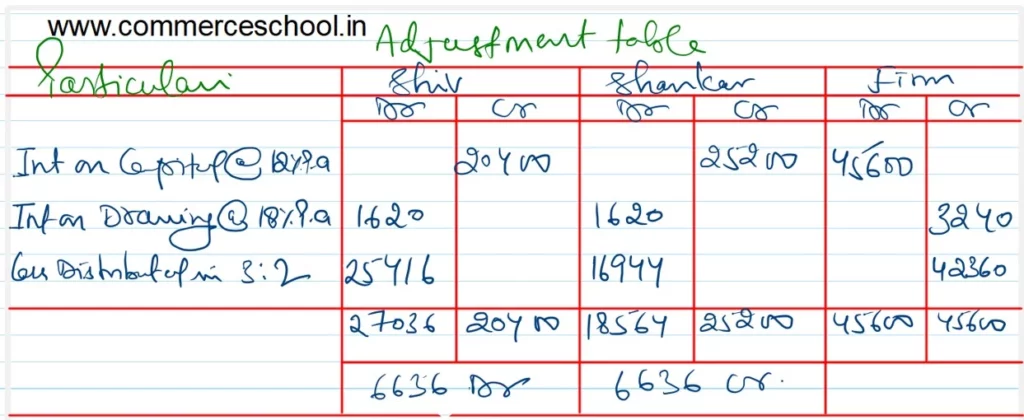 www.commerceschool.in
Adjustment table
Particulars Shiv Shankar Firm
Dr Cr Dr Cr Dr Cr
Int on Capital @ 12% P.a 20400 25200 45600
Int on Drawing @ 18% P.a 1620 1620 3240
Distributed in 3:2 25416 16944 42360
27036 20400 18564 25200 45600 45600
6636 Dr 6636 Cr.